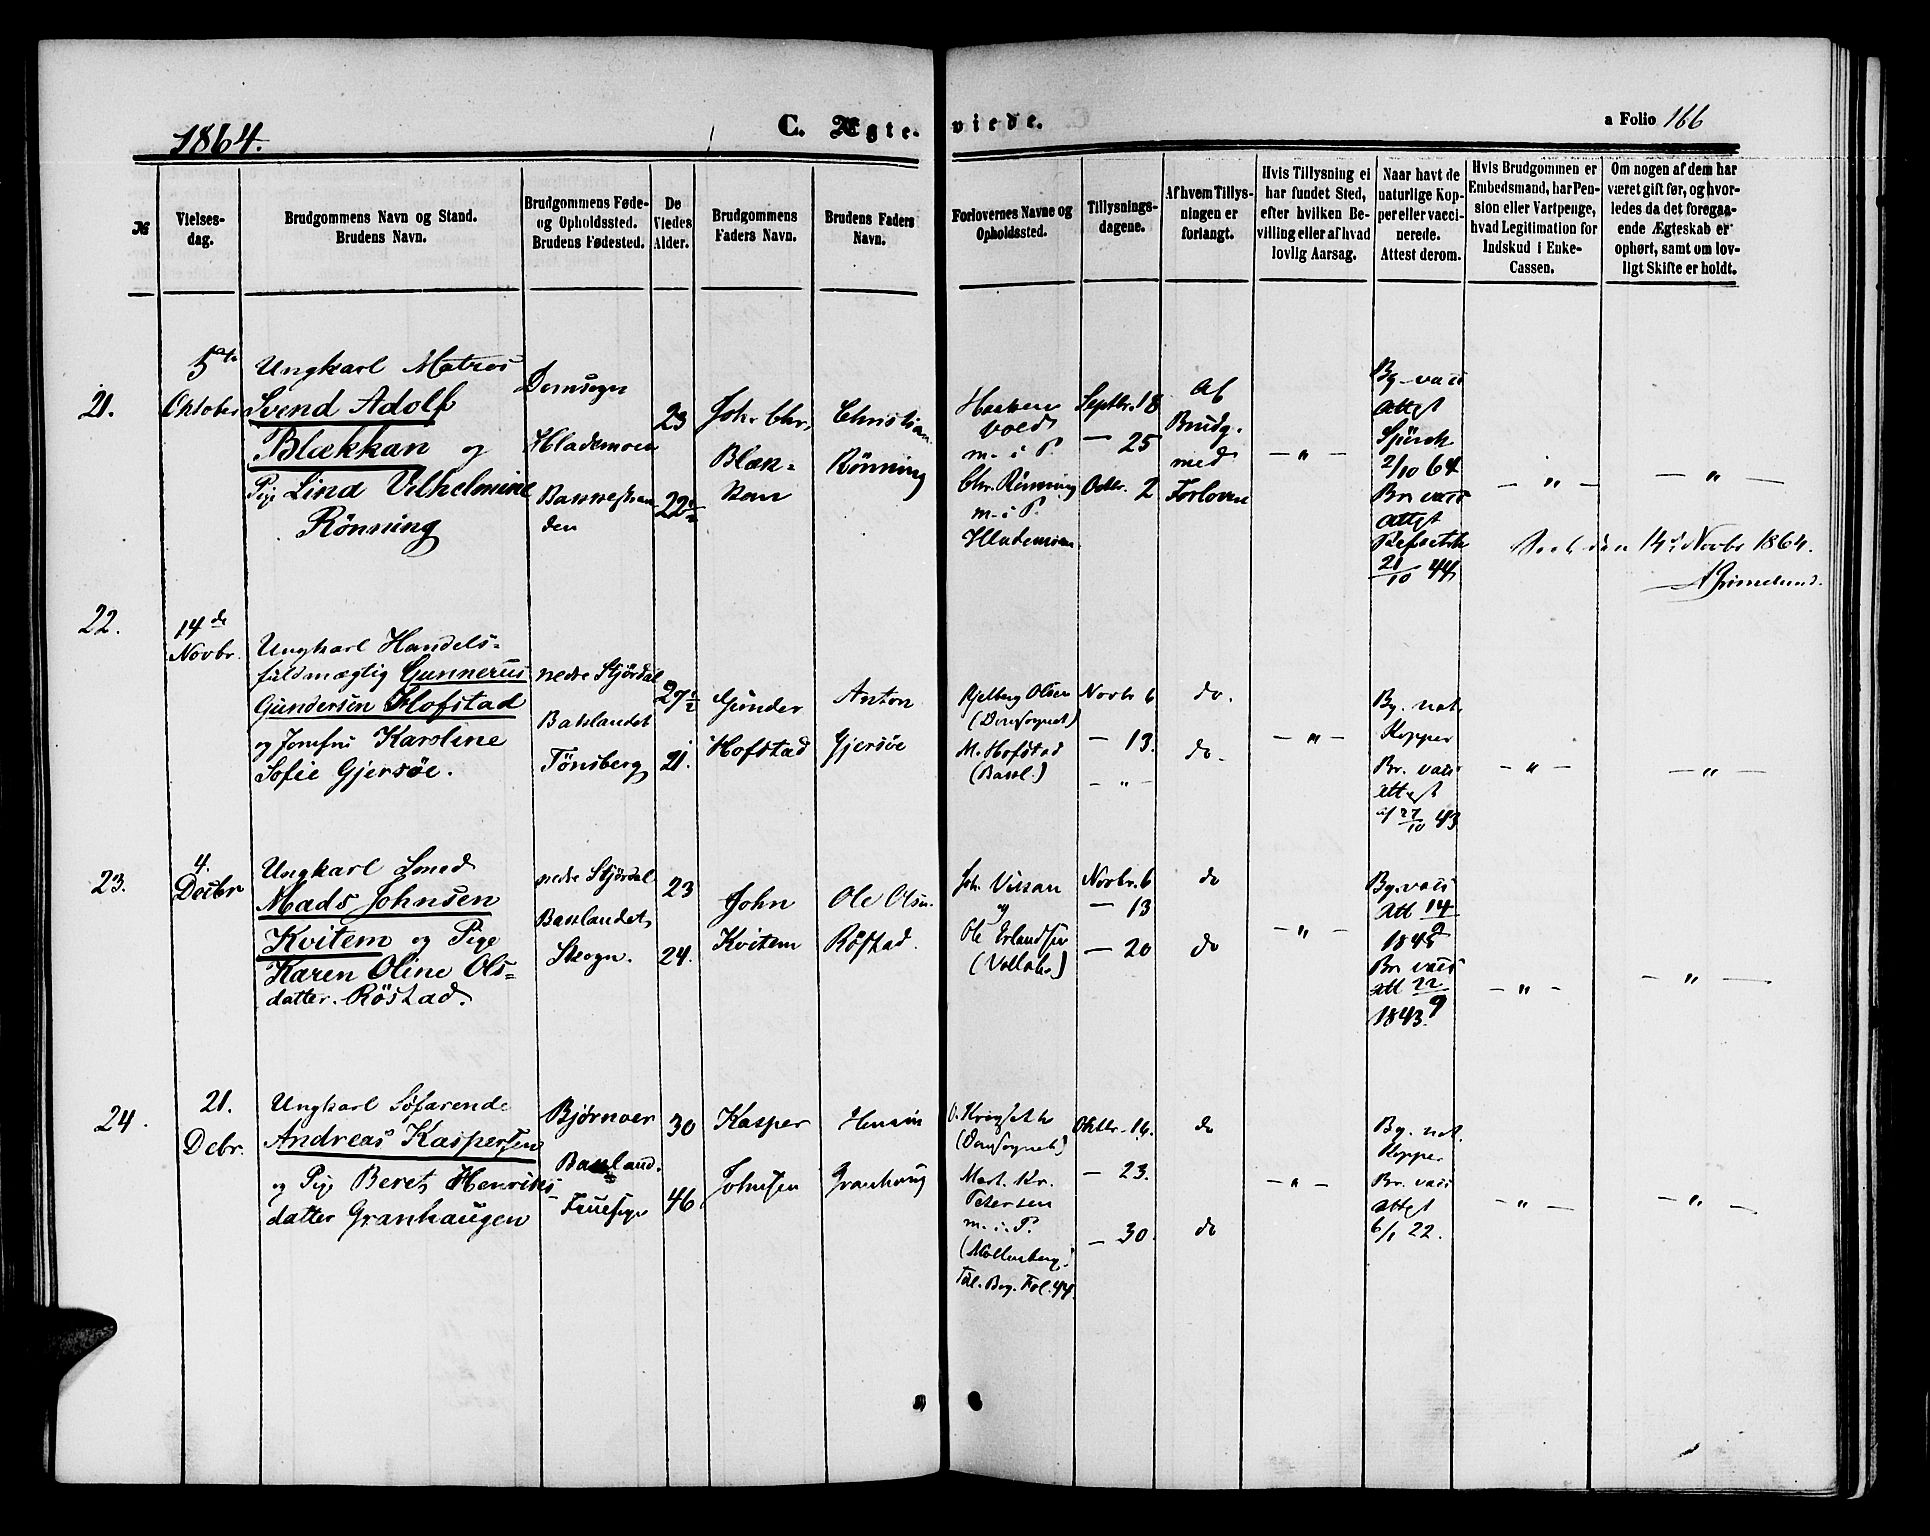 1864.
C. Ægteviede.
a Folio 166
№
Vielsesdag.
Brudgommens Navn og Stand.
Brudens Navn.
Brudgommens Føde-
og Opholdssted.
Brudens Fødested.
De
Viedes
Alder.
Brudgommens
Faders Navn.
Brudens Faders
Navn.
Forlovernes Navne og
Opholdssted.
Tillysnings-
dagene.
Af hvem Tillys-
ningen er
forlangt.
Hvis Tillysning ei
har fundet Sted,
efter hvilken Be-
villing eller af hvad
lovlig Aarsag.
Naar havt de
naturlige Kop-
per eller vacci-
nerede.
Attest derom.
Hvis Brudgommen er
Embedsmand, har Pen-
sion eller Vartpenge,
hvad Legitimation for
Indskud i Enke-
Cassen.
Om nogen af dem har
været gift før, og hvor-
ledes da det foregaa-
ende Ægteskab er
ophørt, samt om lov-
ligt Skifte er holdt.
21.
5te
Oktober
Ungkarl Matros
Svend Adolf
Blækkan og
Pige Lina Vilhelmine
Rönning
Domsogn
Hlademoen
Baksestran
den
23
22½
Joh. Chr.
Blæk=
kan
Christian
Rönning
Haaken
Vold
m. i P.
Chr. Rönning
m. i P.
Hlademoen
Septbr. 18
— 25
Octbr. 2
Af
Brudg.
med
Forlovere
— " —
Bg. vacc
Attest
2/10 64
Br. vacc
Attest
21/10 44
— " —
— " —
Seet den 14de Novbr 1864.
A Grimelund.
22.
14de
Novbr.
Ungkarl Handels-
fuldmægtig Gunnerus
Gundersen Hofstad
og Jomfru Karoline
Sofie Gjersøe.
nedre Stjørdal
Baklandet
Tönsberg
27½
21.
Gunder
Hofstad
Anton
Gjersøe
Kjelberg Olsen
(Domsognet)
M. Hofstad
(Bakl.)
Novbr 6
— 13.
— " —
do.
do.
— " —
Bg. nat.
Kopper
Br. vacc
Attest
af 27/10 43
— " —
— " —
23.
4.
Decbr
Ungkarl Smed
Mads Johnsen
Kvitem og Pige
Karen Oline Ols=
datter. Röstad.
nedre Stjørdal
Baklandet,
Skogn.
23
24.
John
Kvitem
Ole Olsen
Röstad.
og
Ole Erlandsen
Novbr. 6
— 13
— 20
do
do
— " —
Bg. vacc
Att 14/9
1845
Br. vacc
Att 22/9
1843.
— " —
— " —
24.
21.
Decbr.
Ungkarl Söfarende
Andreas Kaspersen
og Pige Beret Henriks-
datter Granhaugen
Bjørnøer
Bakland.
Fruesogn
30
46
Kasper
Johnsen
Henrik
Granhaug
(Domsognet)
Mart. Kr.
Petersen
m. i. P.
(Möllenberg)
Till. Bog. Fol. 44.
Oktbr. 16.
— 23.
— 30.
do
do
— " —
Bg. nat.
Kopper
Br. vacc
Attest
6/1 22.
— " —
— " —